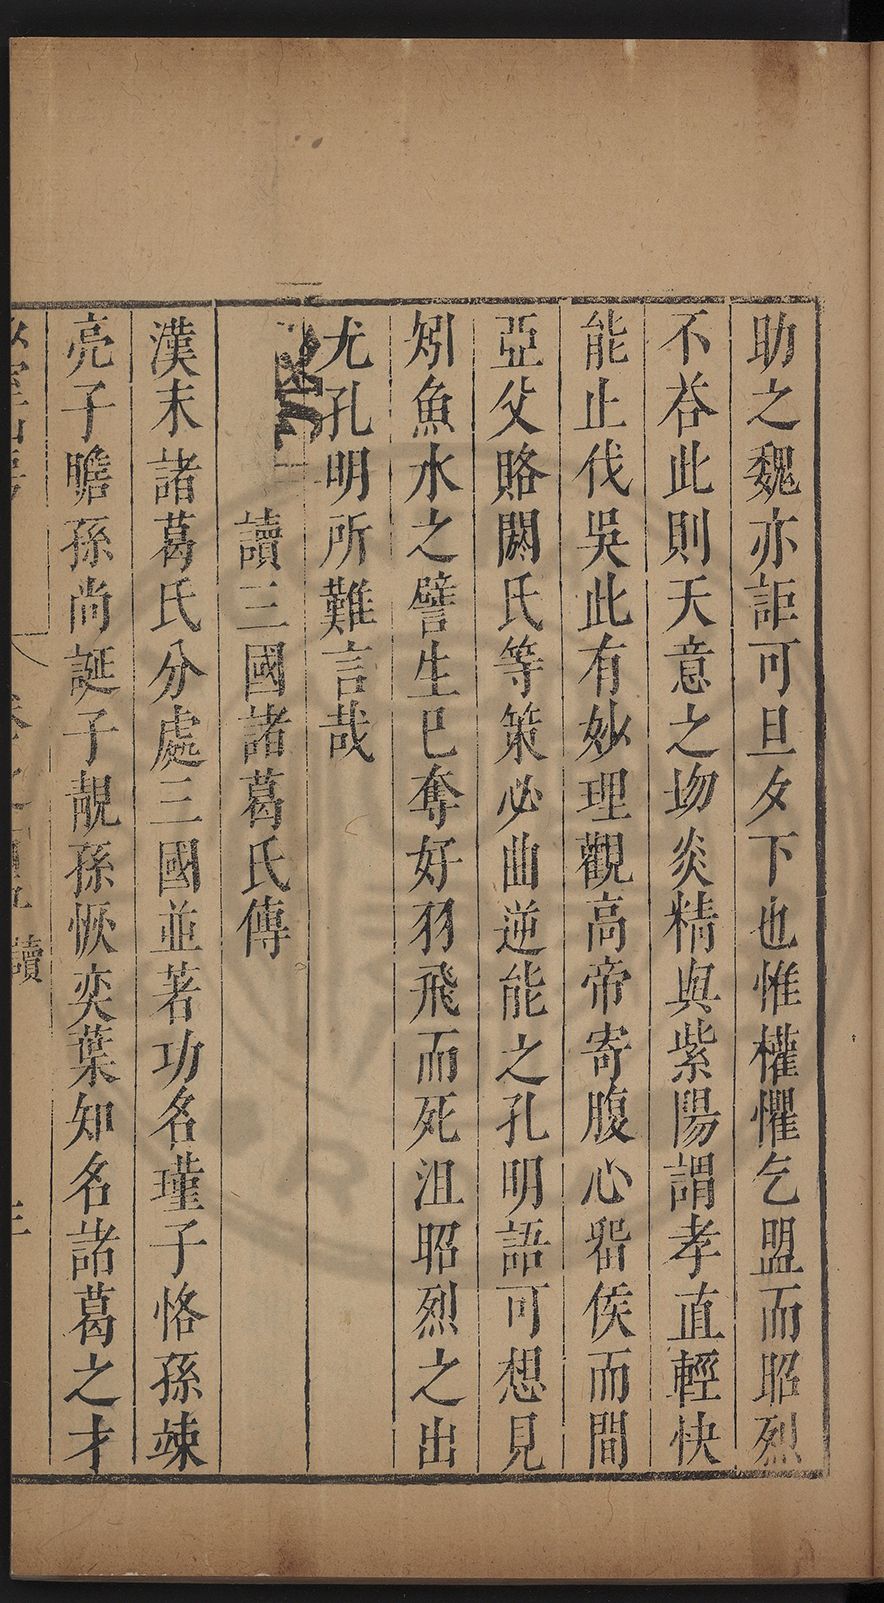 助之魏亦詎可旦夕下也惟權懼乞盟而昭烈
不荅此則天意之坳炎精與紫陽謂孝直輕快
能止伐吳此有妙理觀高帝寄腹心畱侯而間
亞父賂閼氏等策必曲逆能之孔明語可想見
矧魚水之譬生已奪好羽飛而死沮昭烈之出
尤孔明所難言哉
讀三國諸葛氏傳
漢末諸葛氏分處三國並著功名瑾子恪孫竦
亮子瞻孫尚誕子靚孫恢奕葉知名諸葛之才
讀